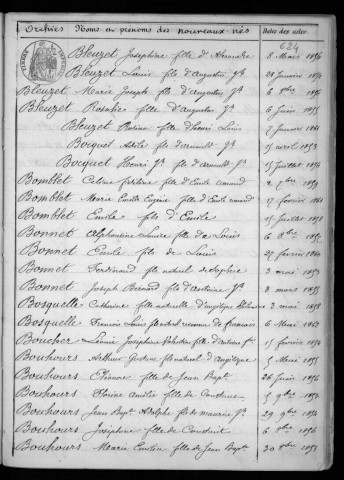 Orchies Noms et prénoms des nouveaux-nés Dates des actes
624
Bleuzet Joséphine fille d'Alexandre 8 Mars 1856
Bleuzet Louis fils d'Augustin Jh 28 janvier
Bleuzet Marie Joseph fils d'Augustin Jh 6 1856
Bleuzet Rosalie fille d'Augustin Jh 6 Juin 1855
Bleuzet fille d'henri Louis 2 Janvier 1861
Bocquet Adèle fille d'arnould Jh 15 avril 1853
Bocquet Henri Jh fils d'arnould Jh 15 Juillet 1856
Bomblet Celine fille d'Emile amand
Bomblet Marie Emilie Eugénie fille d'Emile amand 17 février 1860
Bomblet Emile fils d'Emile 15 Juillet 1858
Bonnet Alphonsine Louise fille de Louis 6
Bonnet Emile fils de Louis 27 février 1860
Bonnet Ferdinand fils naturel de Sophie 3 mai
Bonnet Joseph Bernard fils d'antoine Jh 8 mars 1855
Bosquelle Catherine fille naturelle d'angélique 3 mai
Bosquelle François Louis fils naturel reconnu de français 6 Mai 1862
Boucher Louise Joséphine fille d'antoine 15 février 1856
Bouhours Arthur Gustave fils naturel d'angélique 5 Mai 1855
Bouhours Eléonore fille de Jean Bapt. 26 Juin 1856
Bouhours Florine Amélie fille de 5 9bre
Bouhours Jean Bapt. Adolphe fils de maurice Jh 29 9bre
Bouhours Joséphine fille de 6 1856
Bouhours Marie fille de Jean Bapt. 20